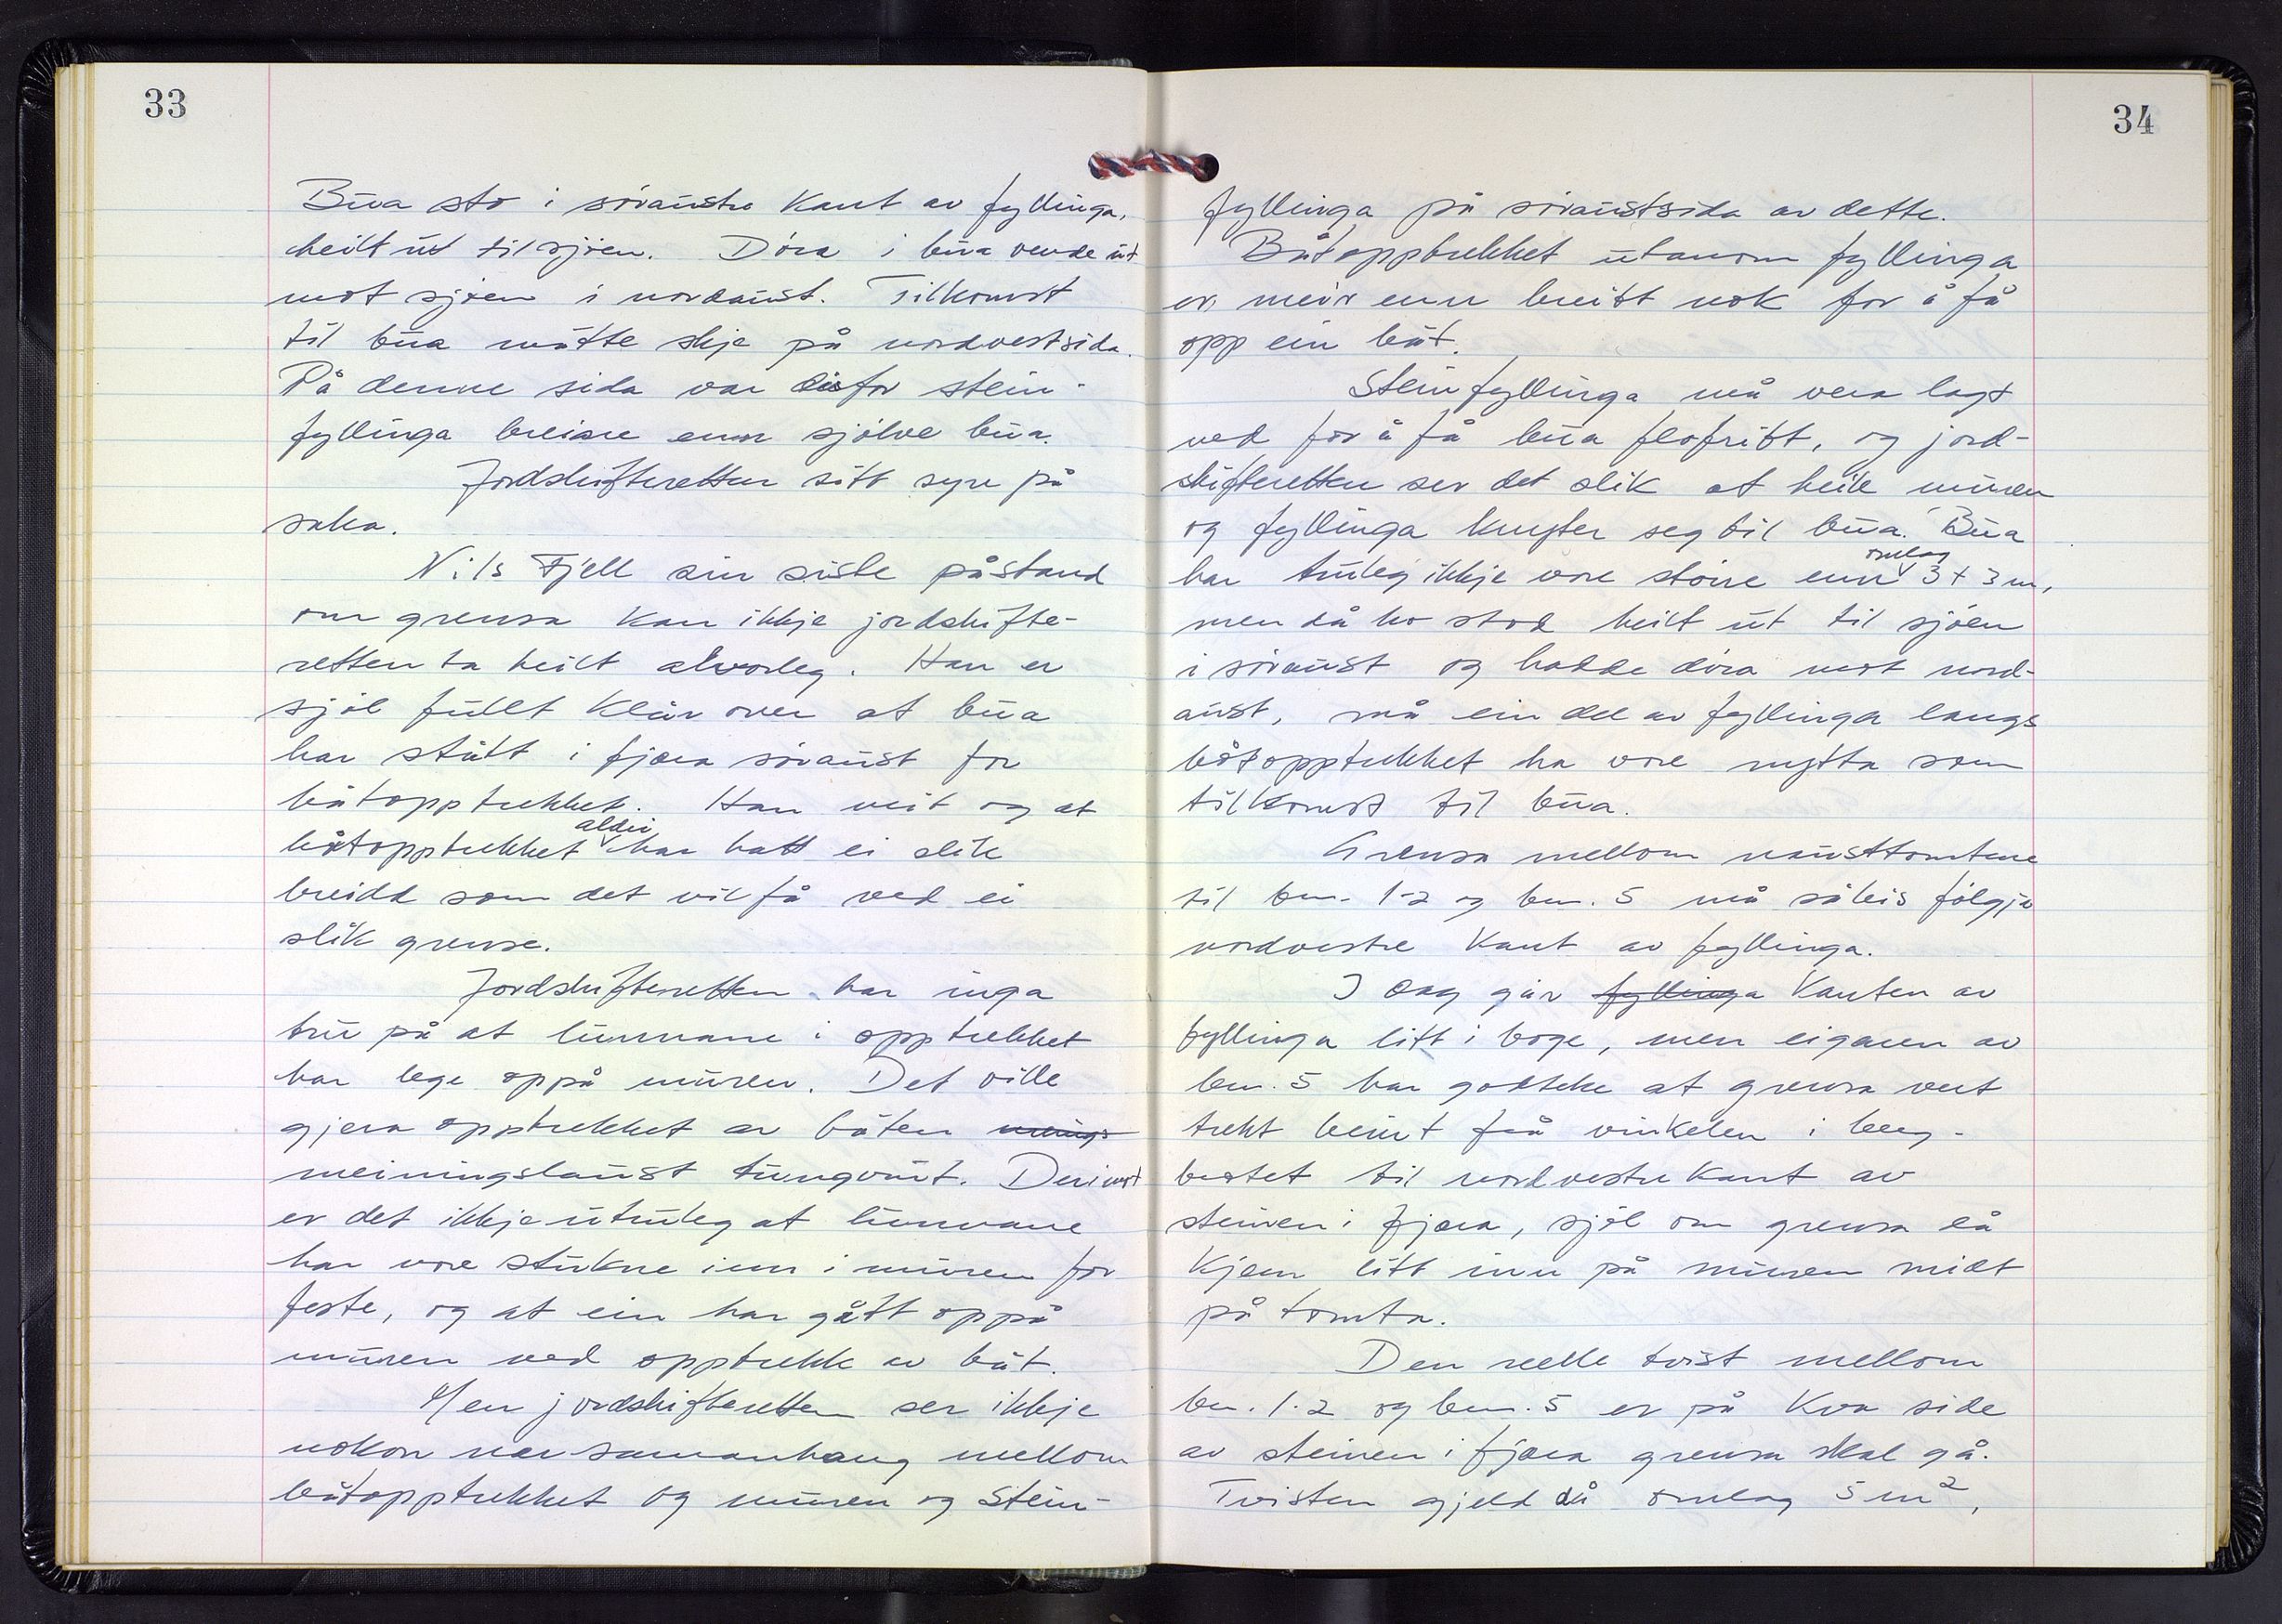 33
Bua sto i søraustre kant av fyllinga,
heilt ut til sjøen. Døra i bua vende ut
mot sjøen i nordaust. Tilkomst
til bua måtte skje på nordvestsida.
På denne sida var difor stein-
fyllinga breiare enn sjølve bua.
Jordskifteretten sitt syn på
saka.
Nils Fjell sin siste påstand
om grensa kan ikkje jordskifte-
retten ta heilt alvorleg. Han er
sjøl fullt klår over at bua
har stått i fjæra søraust for
båtopptrekket. Han veit og at
båtopptrekket aldri har hatt ei slik
breidd som det vil få ved ei
slik grense.
Jordskifteretten har inga
tru på at lunnane i opptrekket
har lege oppå muren. Det ville
gjera opptrekket av båten mings
meiningslaust tungvint. Derimot
er det ikkje utruleg at lunnane
har vore stukne inn i muren for
feste, og at ein har gått oppå
muren ved opptrekk av båt.
Men jordskifteretten ser ikkje
nokon nær samanheng mellom
båtopptrekket og muren og stein-
34
fyllinga på søraustsida av dette.
Båtopptrekket utanom fyllinga
er meir enn breitt nok for å få
opp ein båt.
Steinfyllinga må vera lagt
ned for å få bua flofritt, og jord-
skifteretten ser det slik at heile muren
og fyllinga knyter seg til bua. Bua
har truleg ikkje vore større enn omlag 3 + 3 m,
men då ho stod heilt ut til sjøen
i søraust og hadde døra mot nord-
aust, må ein del av fyllinga langs
båtopptrekket ha vore nytta som
tilkomst til bua.
Grensa mellom nausttomtene
til bnr. 1-2 og bnr. 5 må såleis følgja
nordvestre kant av fyllinga.
I dag går fyllinga kanten av
fyllinga litt i boge, men eigaren av
bnr. 5 har godteke at grensa vert
trekt beint frå vinkelen i berg-
brotet til nordvestre kant av
steinen i fjæra, sjøl om grensa då
kjem litt inn på muren midt
på tomta.
Den reelle tvist mellom
bnr. 1-2 og bnr. 5 er på kva side
av steinen i fjæra grensa skal gå.
Tvisten gjeld då omlag 5 m²,